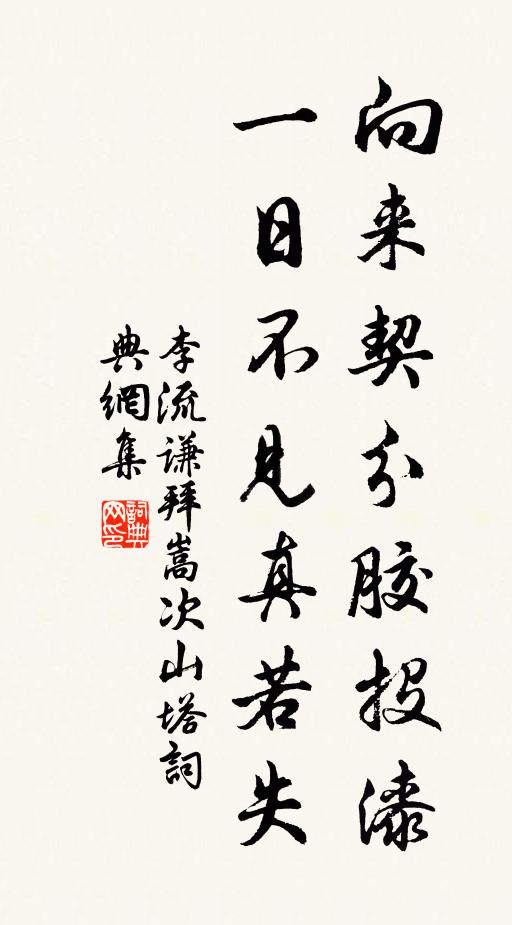 向来契分胶投漆
一日不见真若失
李流谦拜嵩次山塔詞
典網集
詞典网印